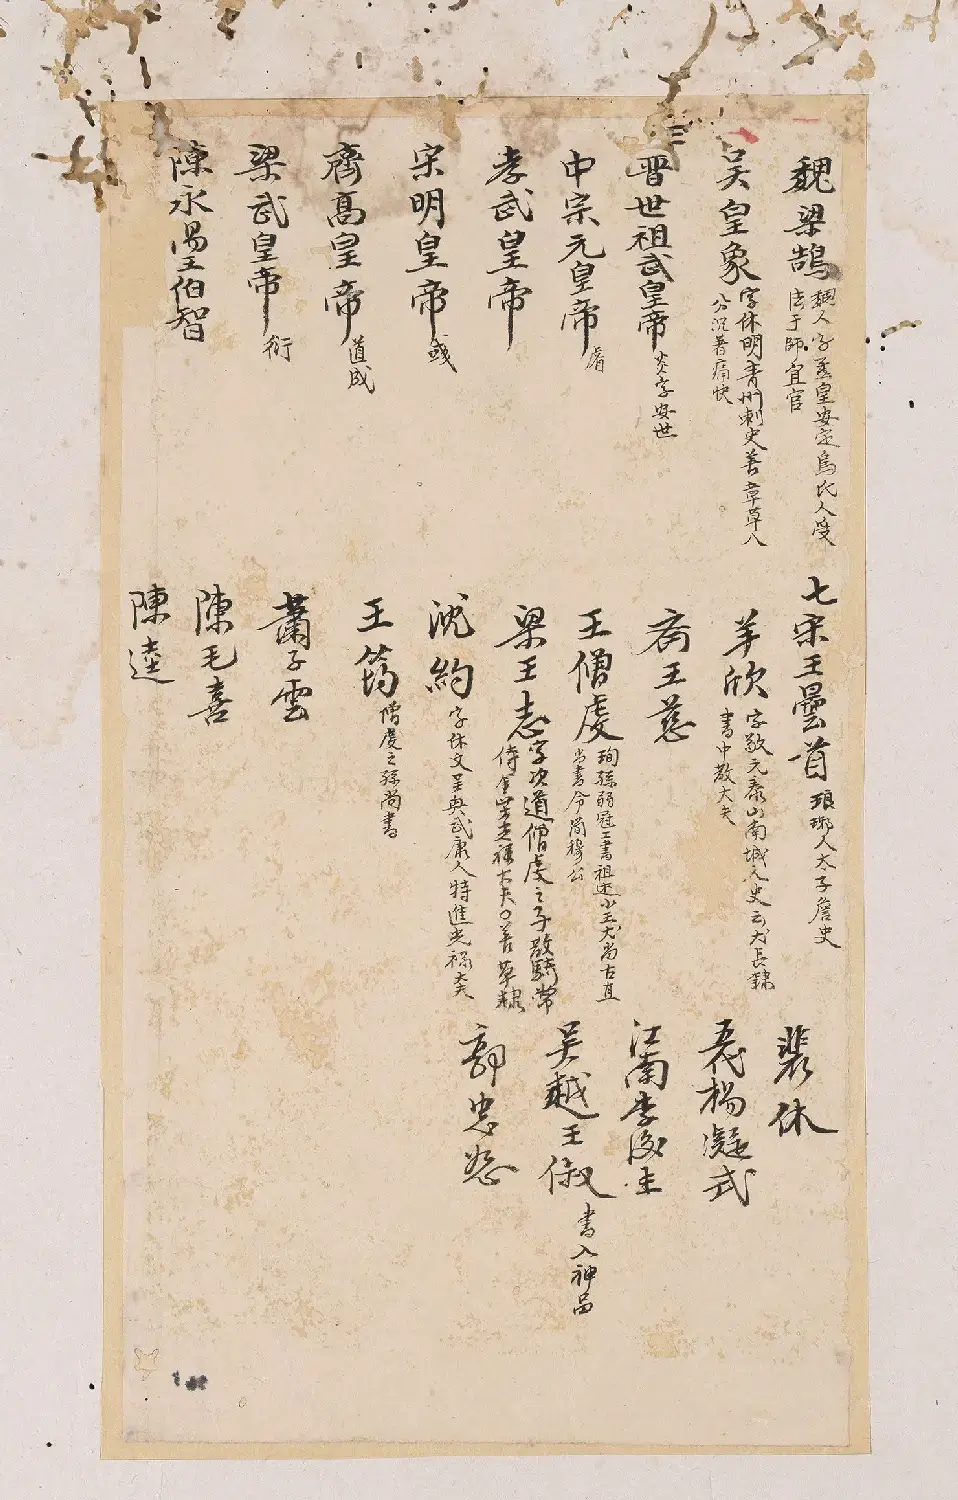 魏梁鵠
魏人字孟皇安定烏氏人受
法于師宜官
吴皇象
字休明青州刺史善章草八
分沉著痛快
三
晋世祖武皇帝
炎字安世
中宗元皇帝
睿
孝武皇帝
宋明皇帝
彧
齊髙皇帝
道成
梁武皇帝
衍
陳永陽王伯智
七宋王曇首
琅琊人太子詹史
羊欣
字敬元泰山南城人史云尤長隸
書中散大夫
齊王慈
王僧虔
珣孫弱冠工書祖述小王尤尚古直
尚書令簡穆公
梁王志
字次道僧虔之子散騎常
侍金紫光禄大夫〇善草隸
沈約
字休文呈興武康人特進光禄大夫
王筠
僧虔之孫尚書
蕭子雲
陳毛喜
陳逵
裴休
五代楊凝式
江南李後主
吴越王俶
書入神品
郭忠恕